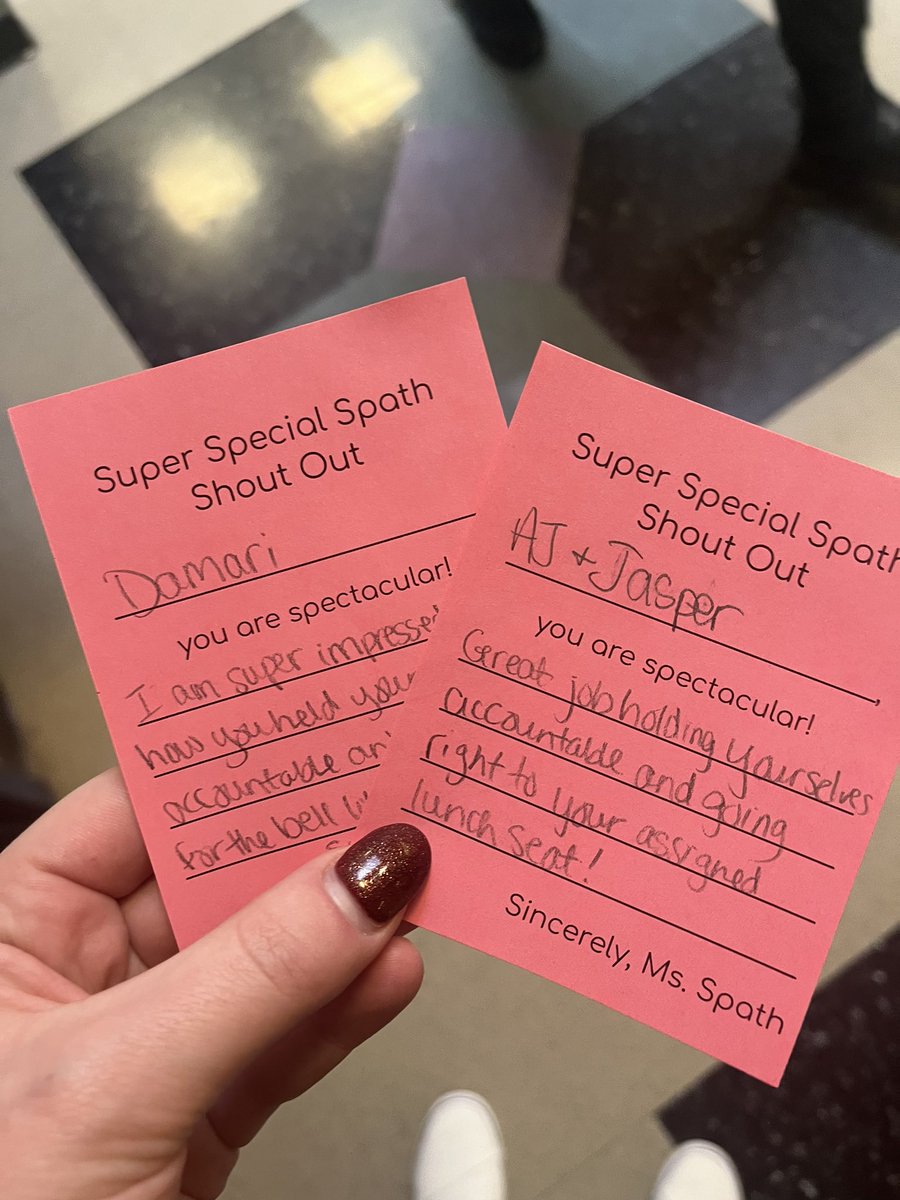 Super Special Spath
Shout Out
Damari
you are spectacular!
I am super impressed
how you held your
accountable an
for the bell
Super Special Spath
Shout Out
AJ + Jasper
you are spectacular!
Great job holding yourselves
accountable and going
right to your assigned
lunch seat!
Sincerely, Ms. Spath